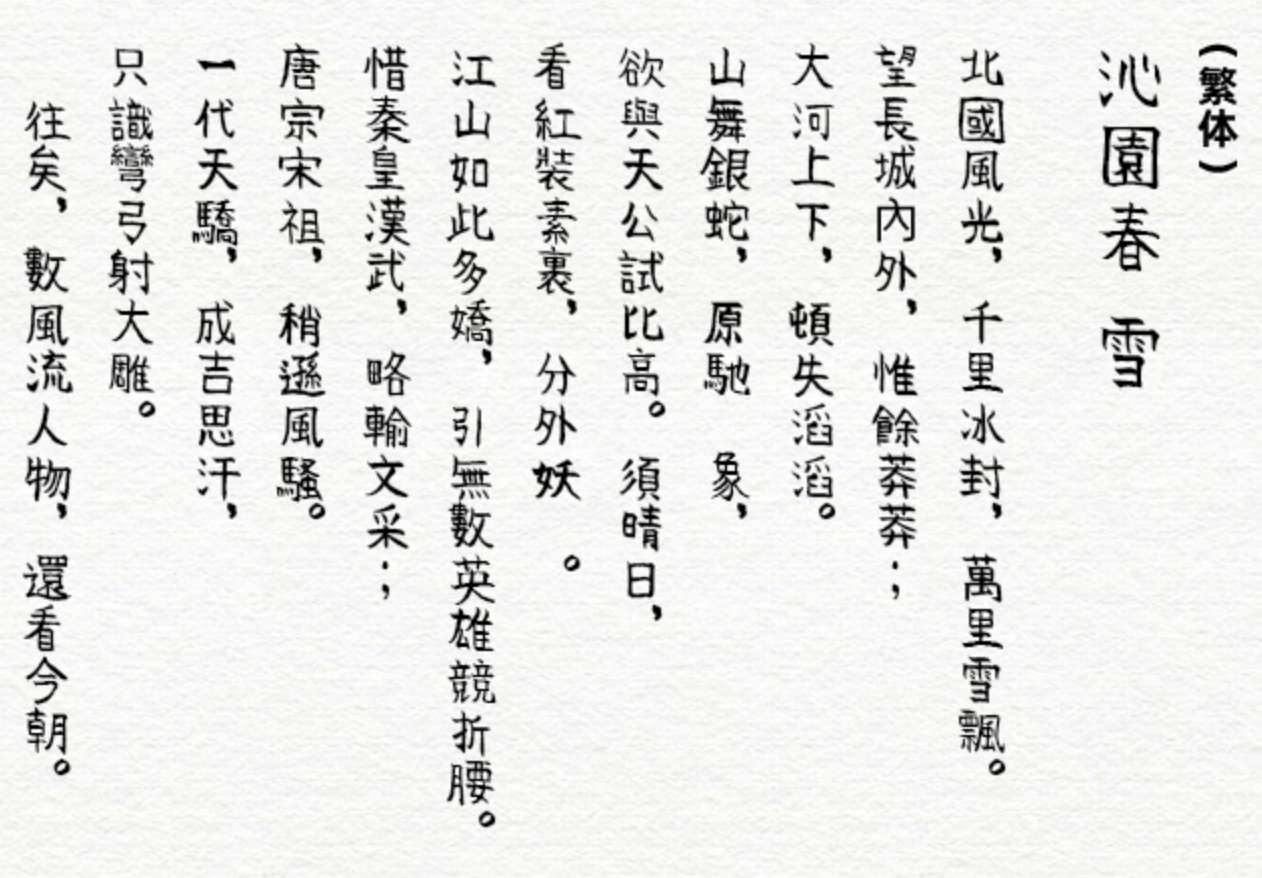 (繁体)
沁園春 雪
北國風光，千里冰封，萬里雪飄。
望長城內外，惟餘莽莽；
大河上下，頓失滔滔。
山舞銀蛇，原馳 象，
欲與天公試比高。須晴日，
看紅裝素裹，分外妖 。
江山如此多嬌，引無數英雄競折腰。
惜秦皇漢武，略輸文采；
唐宗宋祖，稍遜風騷。
一代天驕，成吉思汗，
只識彎弓射大雕。
往矣，數風流人物，還看今朝。